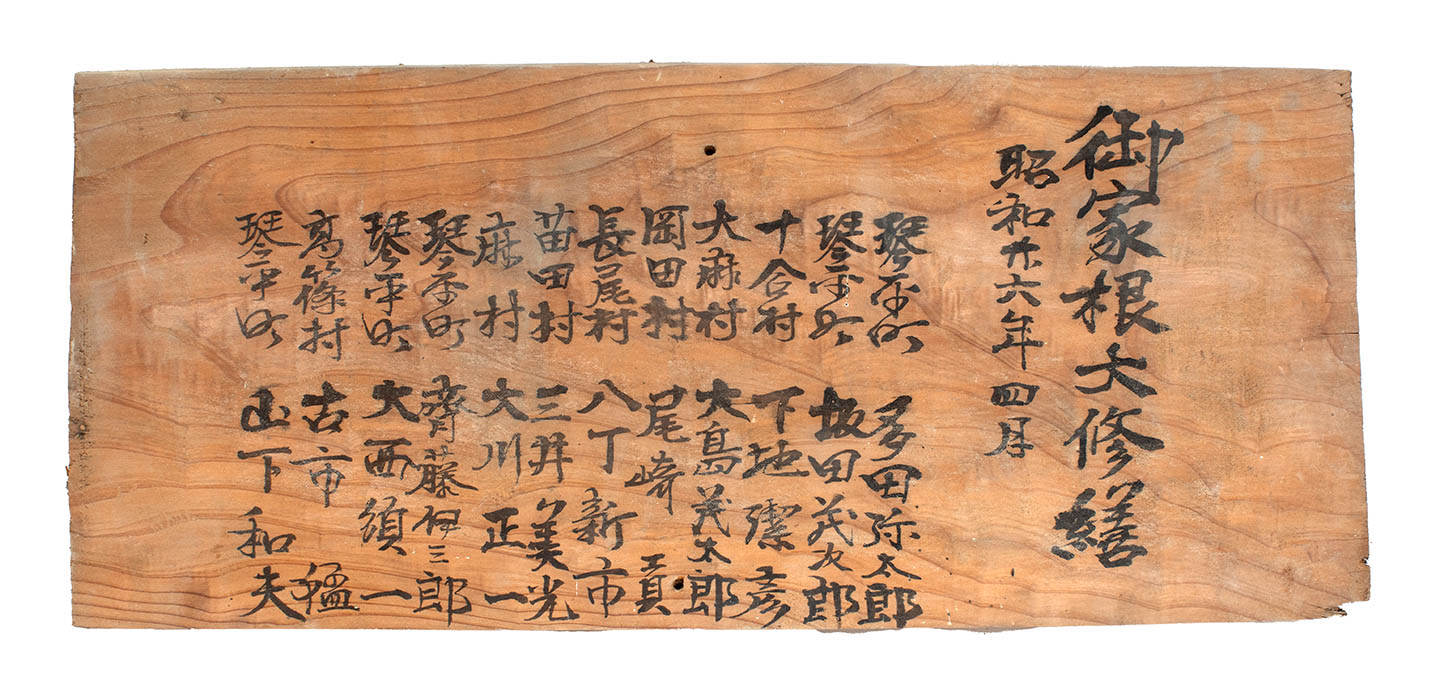 御家根大修繕
昭和廾六年四月
琴平町 多田弥太郎
琴平町 坂田茂次郎
十合村 下地潔彦
大麻村 大島茂太郎
岡田村 尾崎貢
長尾村 八丁新市
苗田村 三井美光
麻村 大川正一
琴平町 齊藤伊三郎
琴平町 大西須一
高篠村 古市
琴平町 山下和夫